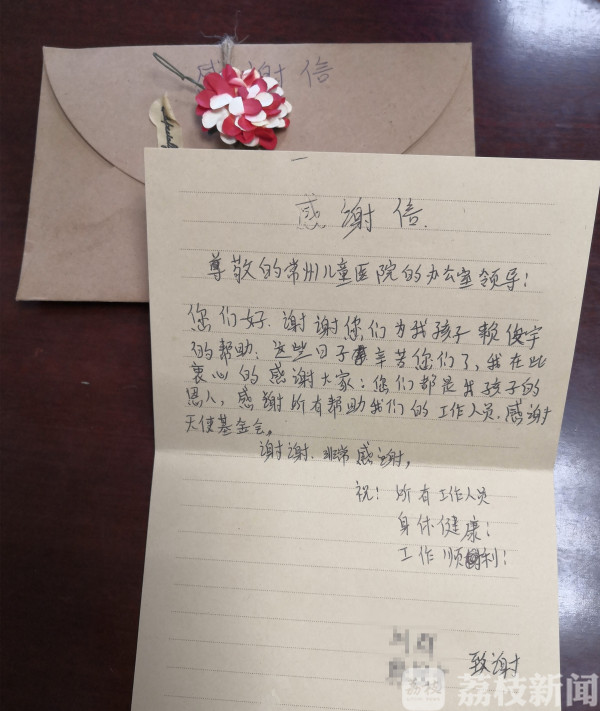 感谢信
感谢信.
尊敬的常州儿童医院的办公室领导:
您们好.谢谢您们为我孩子 赖俊宇
的帮助.这些日子辛苦您们了,我在此
衷心的感谢大家:您们都是我孩子的
恩人,感谢所有帮助我们的工作人员.感谢
天使基金会。
谢谢.非常感谢,
祝:所有工作人员
身体健康:
工作顺利:
致谢
荔枝 荔枝新闻